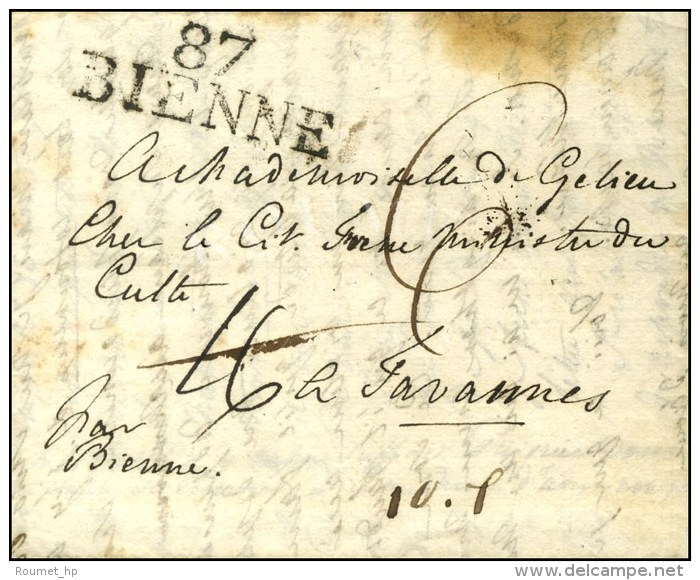 87
BIENNE
A Mademoiselle de Gelieu
Chez le Cit. Frene Ministre du
Culte
à Tavannes
par
Bienne.
10.
Roumet_hp
delcampe.net